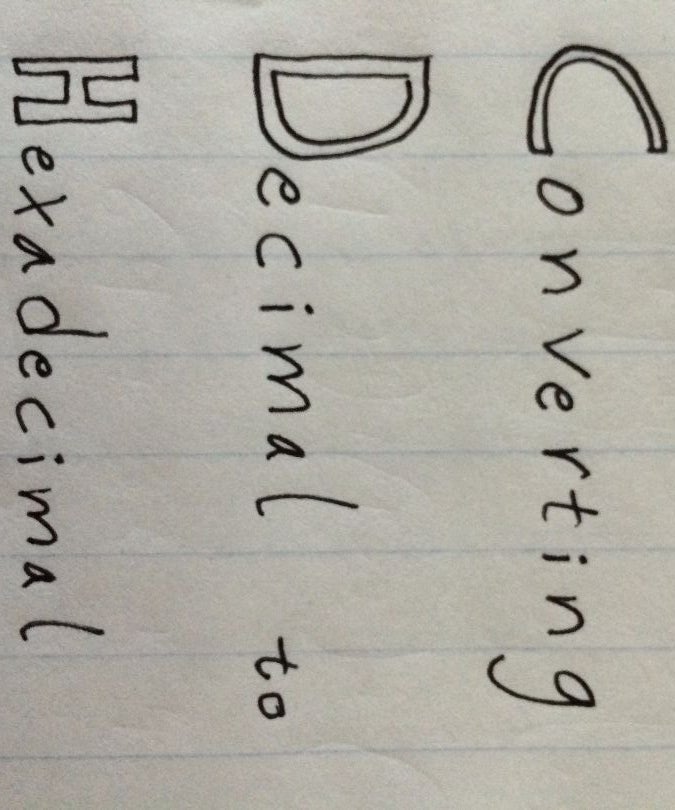 Converting
Decimal to
Hexadecimal